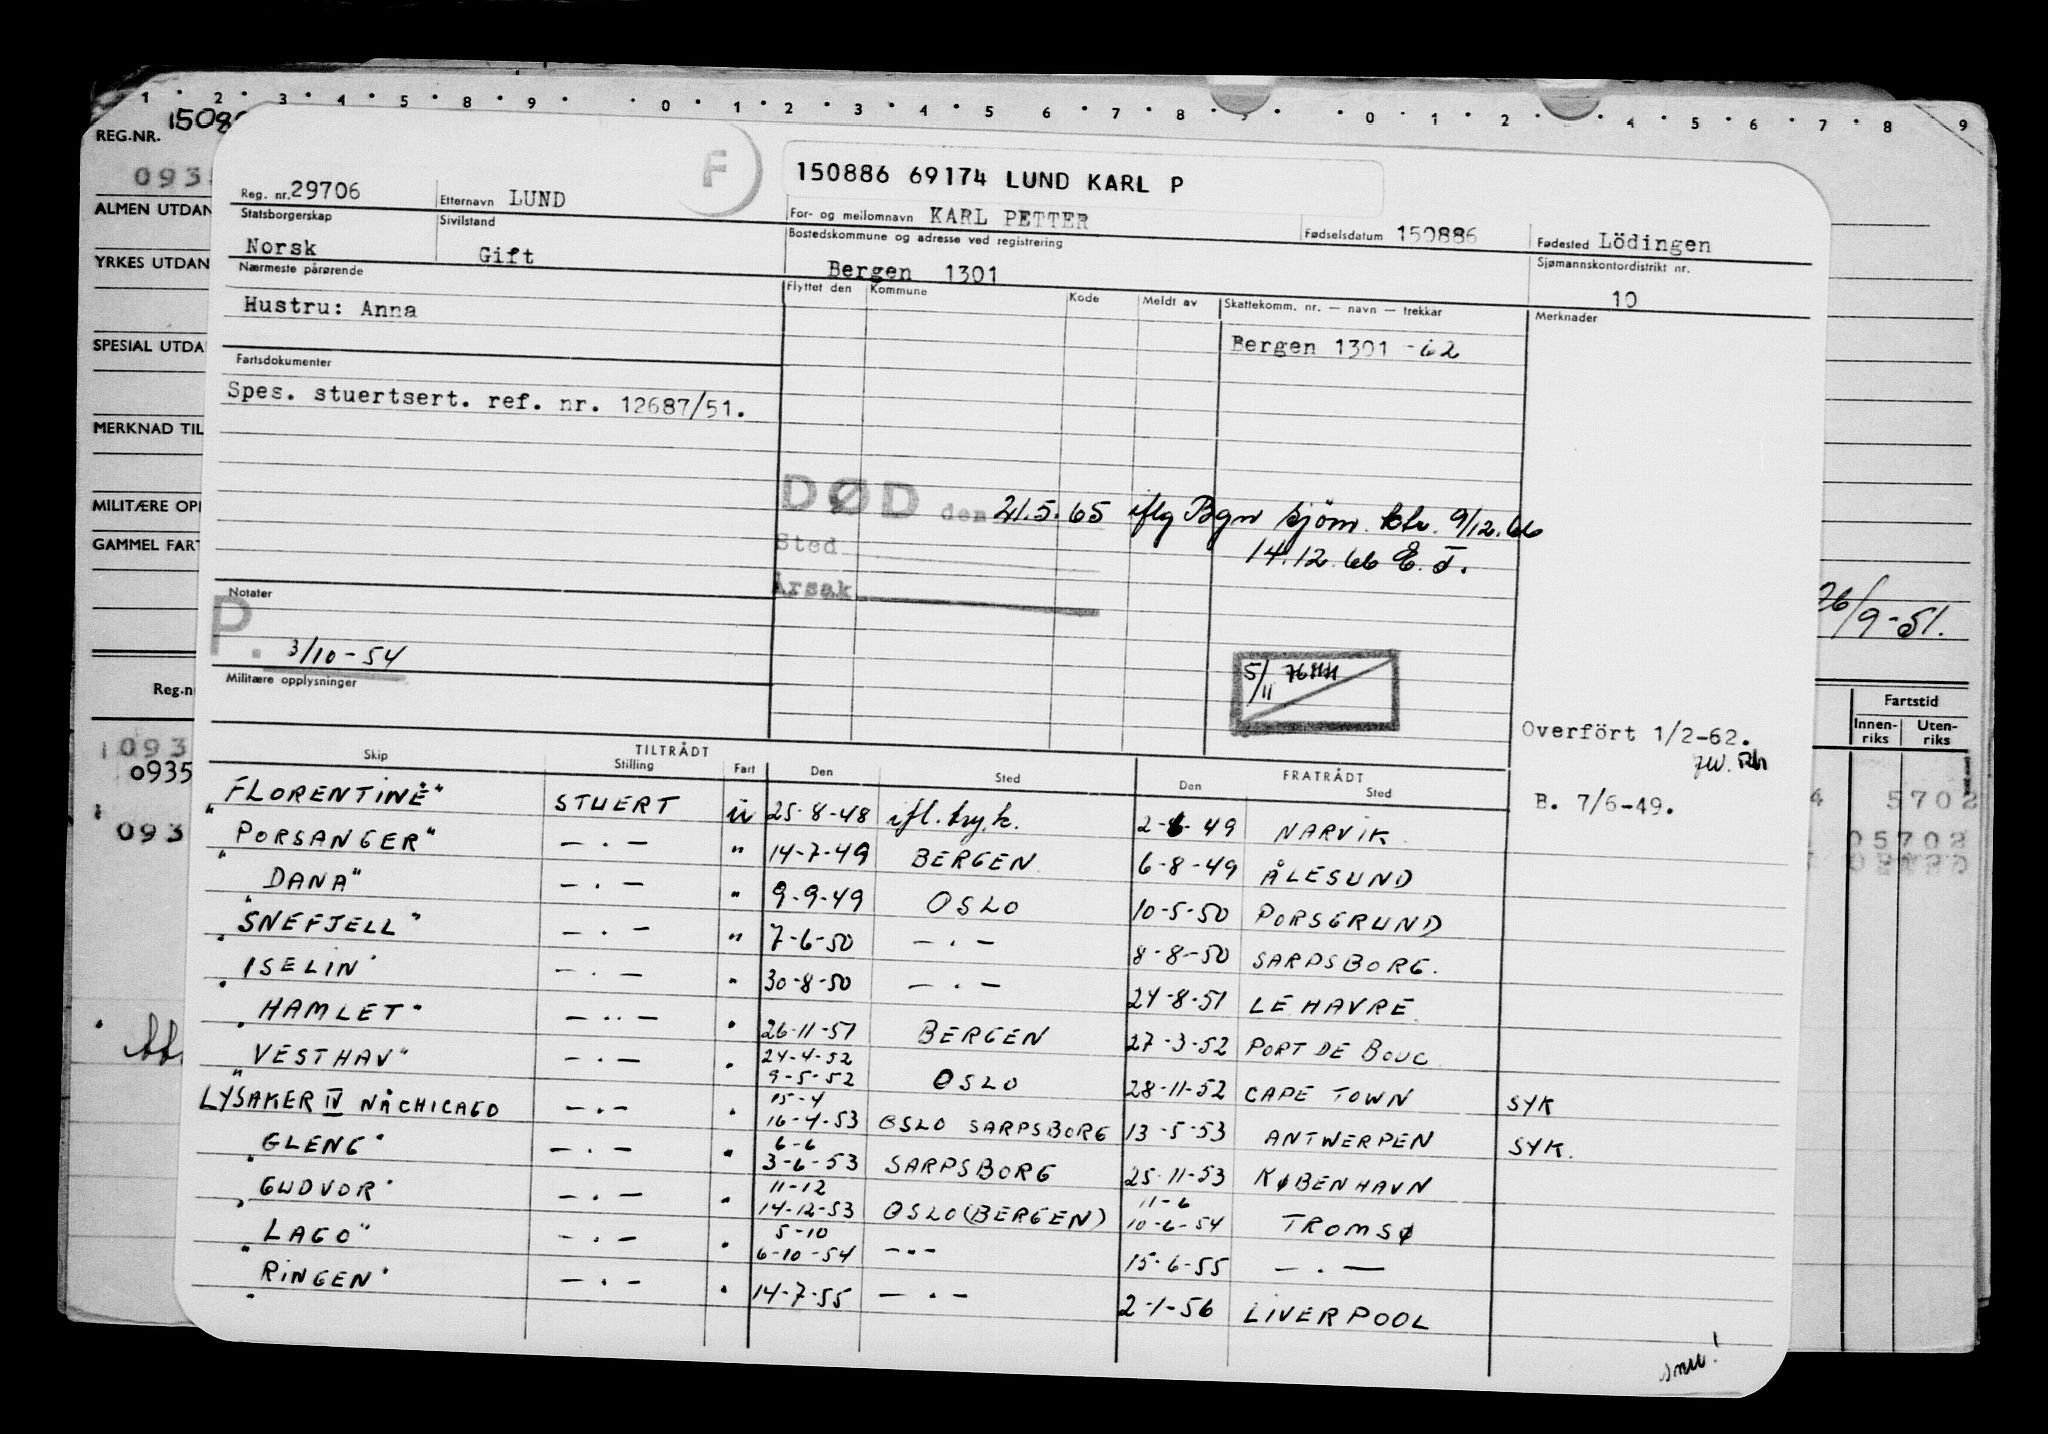 1 · 2 · 3 · 4 · 5 · 8 · 9 · · 0 · 1 · 2 · 3 · 4 · 5 6 · 7 · 8 · 9 · · 0 · 1 · 2 · 4 · 5 · 6 · 7 · 8 9
REG.NR.
ALMEN UTDAN
YRKES UTDAN
SPESIAL UTDA
MERKNAD TIL
MILITÆRE OP
GAMMEL FART
Reg.n
093
0935
093
26/9-51.
Fartstid
Innen-riks Uten-riks
5702
05702
F
150886 69174 LUND KARL P
Reg. nr. 29706 Etternavn LUND For- og mellomnavn KARL PETTER Fødselsdatum 150886 Fødested Lödingen
Statsborgerskap Sivilstand Bostedskommune og adresse ved registrering Sjømannskontordistrikt nr.
Norsk Gift Bergen 1301 10
Nærmeste pårørende Flyttet den Kommune Kode Meldt av Skattekomm. nr. — navn — trekkar Merknader
Hustru: Anna
Bergen 1301 -62
Fartsdokumenter
Spes. stuertsert. ref. nr. 12687/51.
DØD den 21.5.65 iflg Bgn sjöm. ktr. 9/12.66
Sted 14.12.66 E.T.
Årsak
Notater
P. 3/10-54
5/11
Militære opplysninger
Overfört 1/2-62.
TILTRÅDT FRATRÅDT
Skip Stilling Fart Den Sted Den Sted
B. 7/6-49.
"FLORENTINE" STUERT u 25-8-48 ifl. try.k. 2-6-49 NARVIK
"PORSANGER" — . — " 14-7-49 BERGEN 6-8-49 ÅLESUND
"DANA" — . — " 9-9-49 OSLO 10-5-50 PORSGRUND
"SNEFJELL" — . — " 7-6-50 — . — 8-8-50 SARPSBORG.
"ISELIN" — . — " 30-8-50 — . — 24-8-51 LE HAVRE
"HAMLET" — .. — " 26-11-51 BERGEN 27-3-52 PORT DE BOUC
"VESTHAV" — . — " 24-4-52 9-5-52 OSLO 28-11-52 CAPE TOWN SYK
LYSAKER IV NÅ CHICAGO — . — " 15-4 16-4-53 OSLO SARPSBORG 13-5-53 ANTWERPEN SYK.
"GLENG" — . — " 6-6 3-6-53 SARPSBORG 25-11-53 KØBENHAVN
"GUDVOR" — . — " 11-12 14-12-53 OSLO (BERGEN) 11-6 10-6-54 TROMSØ
"LAGO" — . — " 5-10 6-10-54 — . — 15-6-55 — . —
"RINGEN" — . — " 14-7-55 — . — 2-1-56 LIVERPOOL
snu!